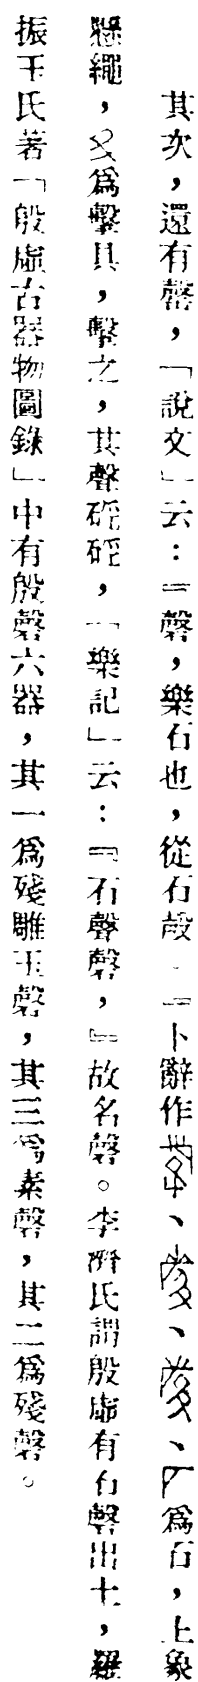 其次，還有磬，「說文」云：『磬，樂石也，從石殸．』卜辭作、、、厂為石，上象
懸繩，殳為擊具，擊之，其聲硜硜，「樂記」云：『石聲磬，』故名磬。李濟氏謂殷虛有石磬出土，羅
振玉氏著「殷虛古器物圖錄」中有殷磬六器，其一為殘雕玉磬，其三為素磬，其二為殘磬。